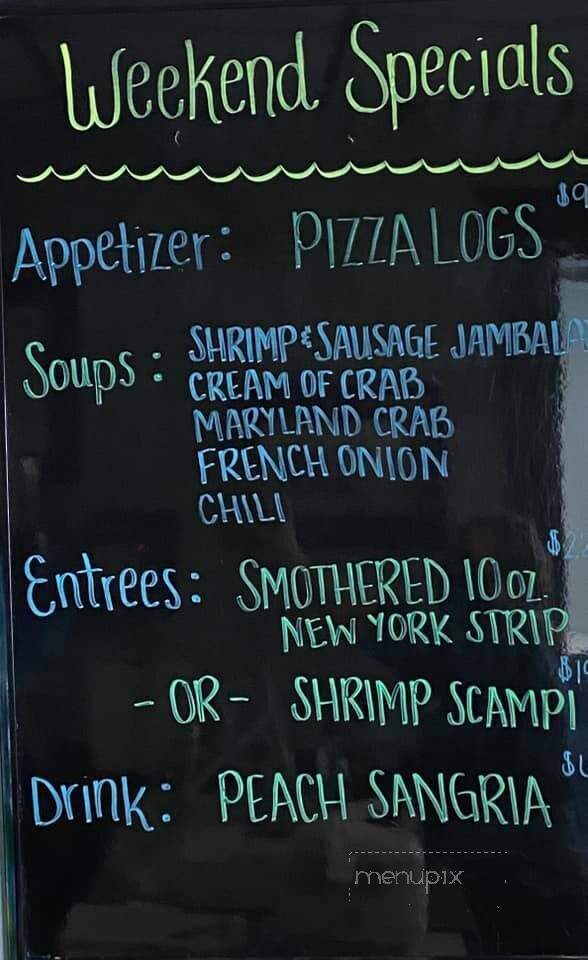 Weekend Specials
$9
Appetizer: PIZZA LOGS
Soups: SHRIMP & SAUSAGE JAMBALA
CREAM OF CRAB
MARYLAND CRAB
FRENCH ONION
CHILI
Entrees: SMOTHERED 10 oz.
NEW YORK STRIP
- OR - SHRIMP SCAMPI
Drink: PEACH SANGRIA
menupix